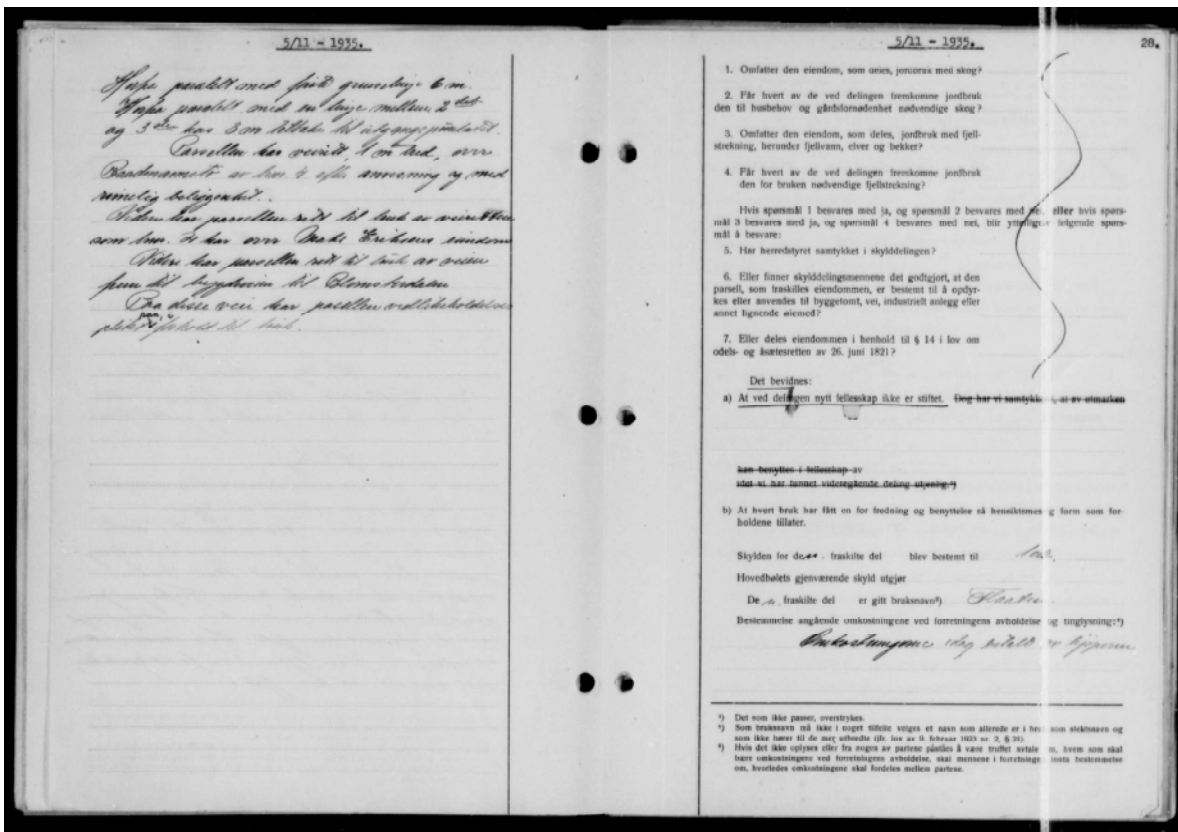 5/11 - 1935.
med
med en linje mellem 2 det
og 3
Parsellen har veirett, 4 m bred, over
av
anvisning og med
rimelig beliggenhet.
har parsellen rett til bruk av
som har over Eriksens eiendom
har parsellen rett til bruk av veien
frem til bygdeveien til
disse veie har parsellen
til bruk.
5/11 - 1935.
28.
1. Omfatter den eiendom, som deles, jordbruk med skog?
2. Får hvert av de ved delingen fremkomne jordbruk
den til husbehov og gårdsfornødenhet nødvendige skog?
3. Omfatter den eiendom, som deles, jordbruk med fjell-
strekning, herunder fjellvann, elver og bekker?
4. Får hvert av de ved delingen fremkomne jordbruk
den for bruken nødvendige fjellstrekning?
Hvis spørsmål 1 besvares med ja, og spørsmål 2 besvares med nei, eller hvis spørs-
mål 3 besvares med ja, og spørsmål 4 besvares med nei, blir ytterligere følgende spørs-
mål å besvare:
5. Har herredstyret samtykket i skylddelingen?
6. Eller finner skylddelingsmennene det godtgjort, at den
parsell, som fraskilles eiendommen, er bestemt til å opdyr-
kes eller anvendes til byggetomt, vei, industrielt anlegg eller
annet lignende øiemed?
7. Eller deles eiendommen i henhold til § 14 i lov om
odels- og åsætesretten av 26. juni 1821?
Det bevidnes:
a) At ved delingen nytt fellesskap ikke er stiftet. Dog har vi samtykket, at av utmarken
kan benyttes i fellesskap av
idet vi har funnet videregående deling utjenlig.¹)
b) At hvert bruk har fått en for fredning og benyttelse så hensiktsmessig form som for-
holdene tillater.
Skylden for den fraskilte del blev bestemt til
Hovedbølets gjenværende skyld utgjør
De n fraskilte del er gitt bruksnavn²)
Bestemmelse angående omkostningene ved forretningens avholdelse og tinglysning:³)
Omkostningene idag betalt av kjøperen
¹) Det som ikke passer, overstrykes.
²) Som bruksnavn må ikke i noget tilfelle velges et navn som allerede er i bruk som slektsnavn og
som ikke hører til de mer utbredte (jfr. lov av 9. februar 1923 nr. 2, § 21).
³) Hvis det ikke oplyses eller fra nogen av partene påståes å være truffet avtale om, hvem som skal
bære omkostningene ved forretningens avholdelse, skal mennene i forretningen inneta bestemmelse
om, hvorledes omkostningene skal fordeles mellem partene.